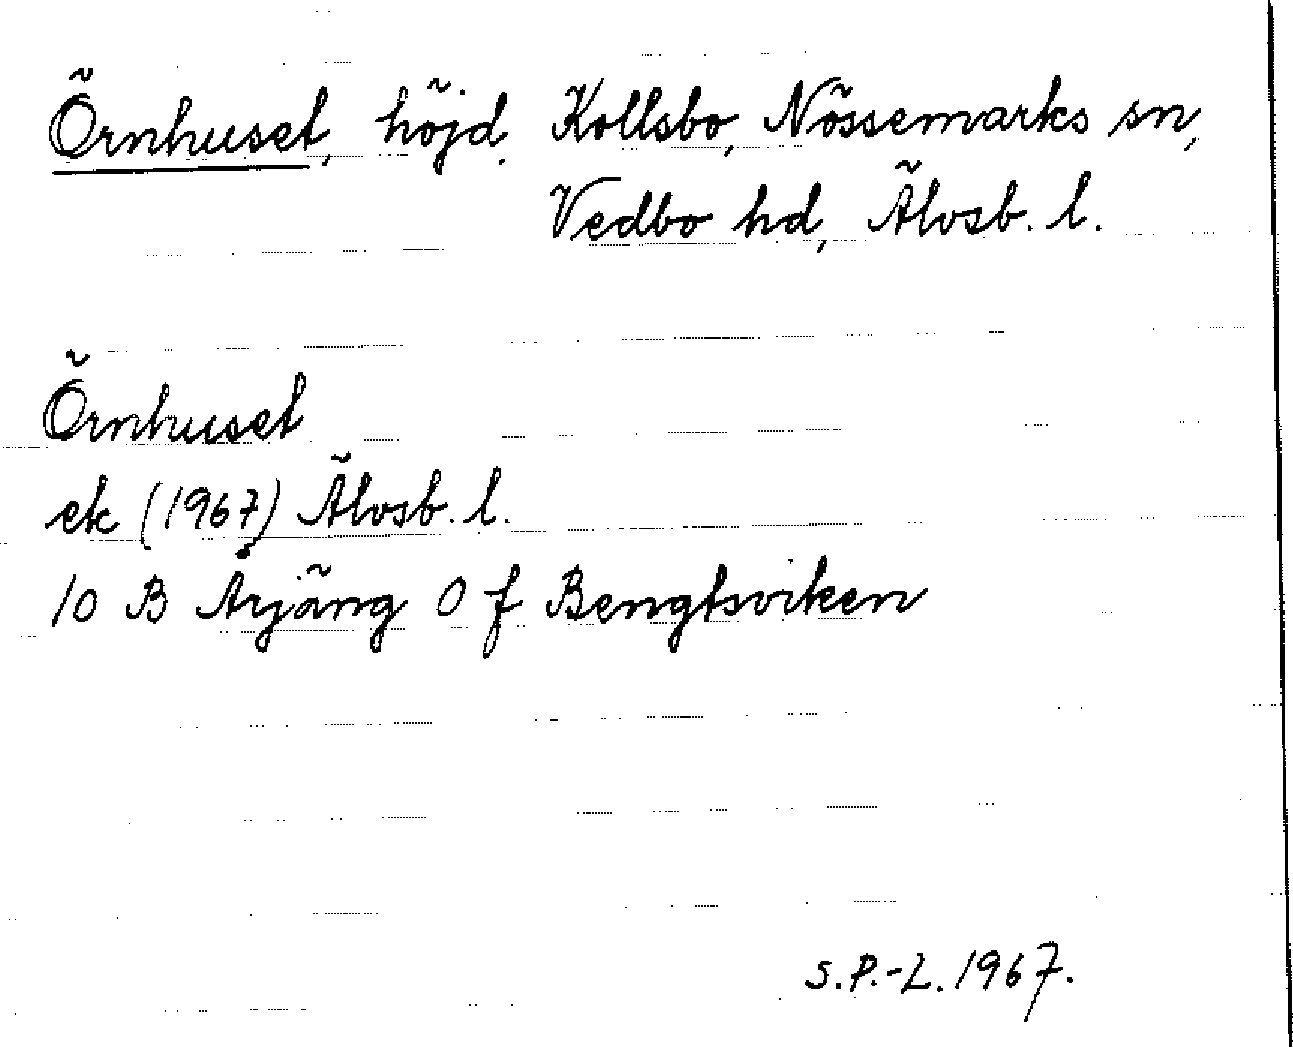 Örnhuset, höjd, Kollsbo, Nössemarks sn,
Vedbo hd, Älvsb. l.
Örnhuset
ek (1967) Älvsb. l.
10 B Årjäng 0 f Bengtsviken
S.P.-L. 1967.